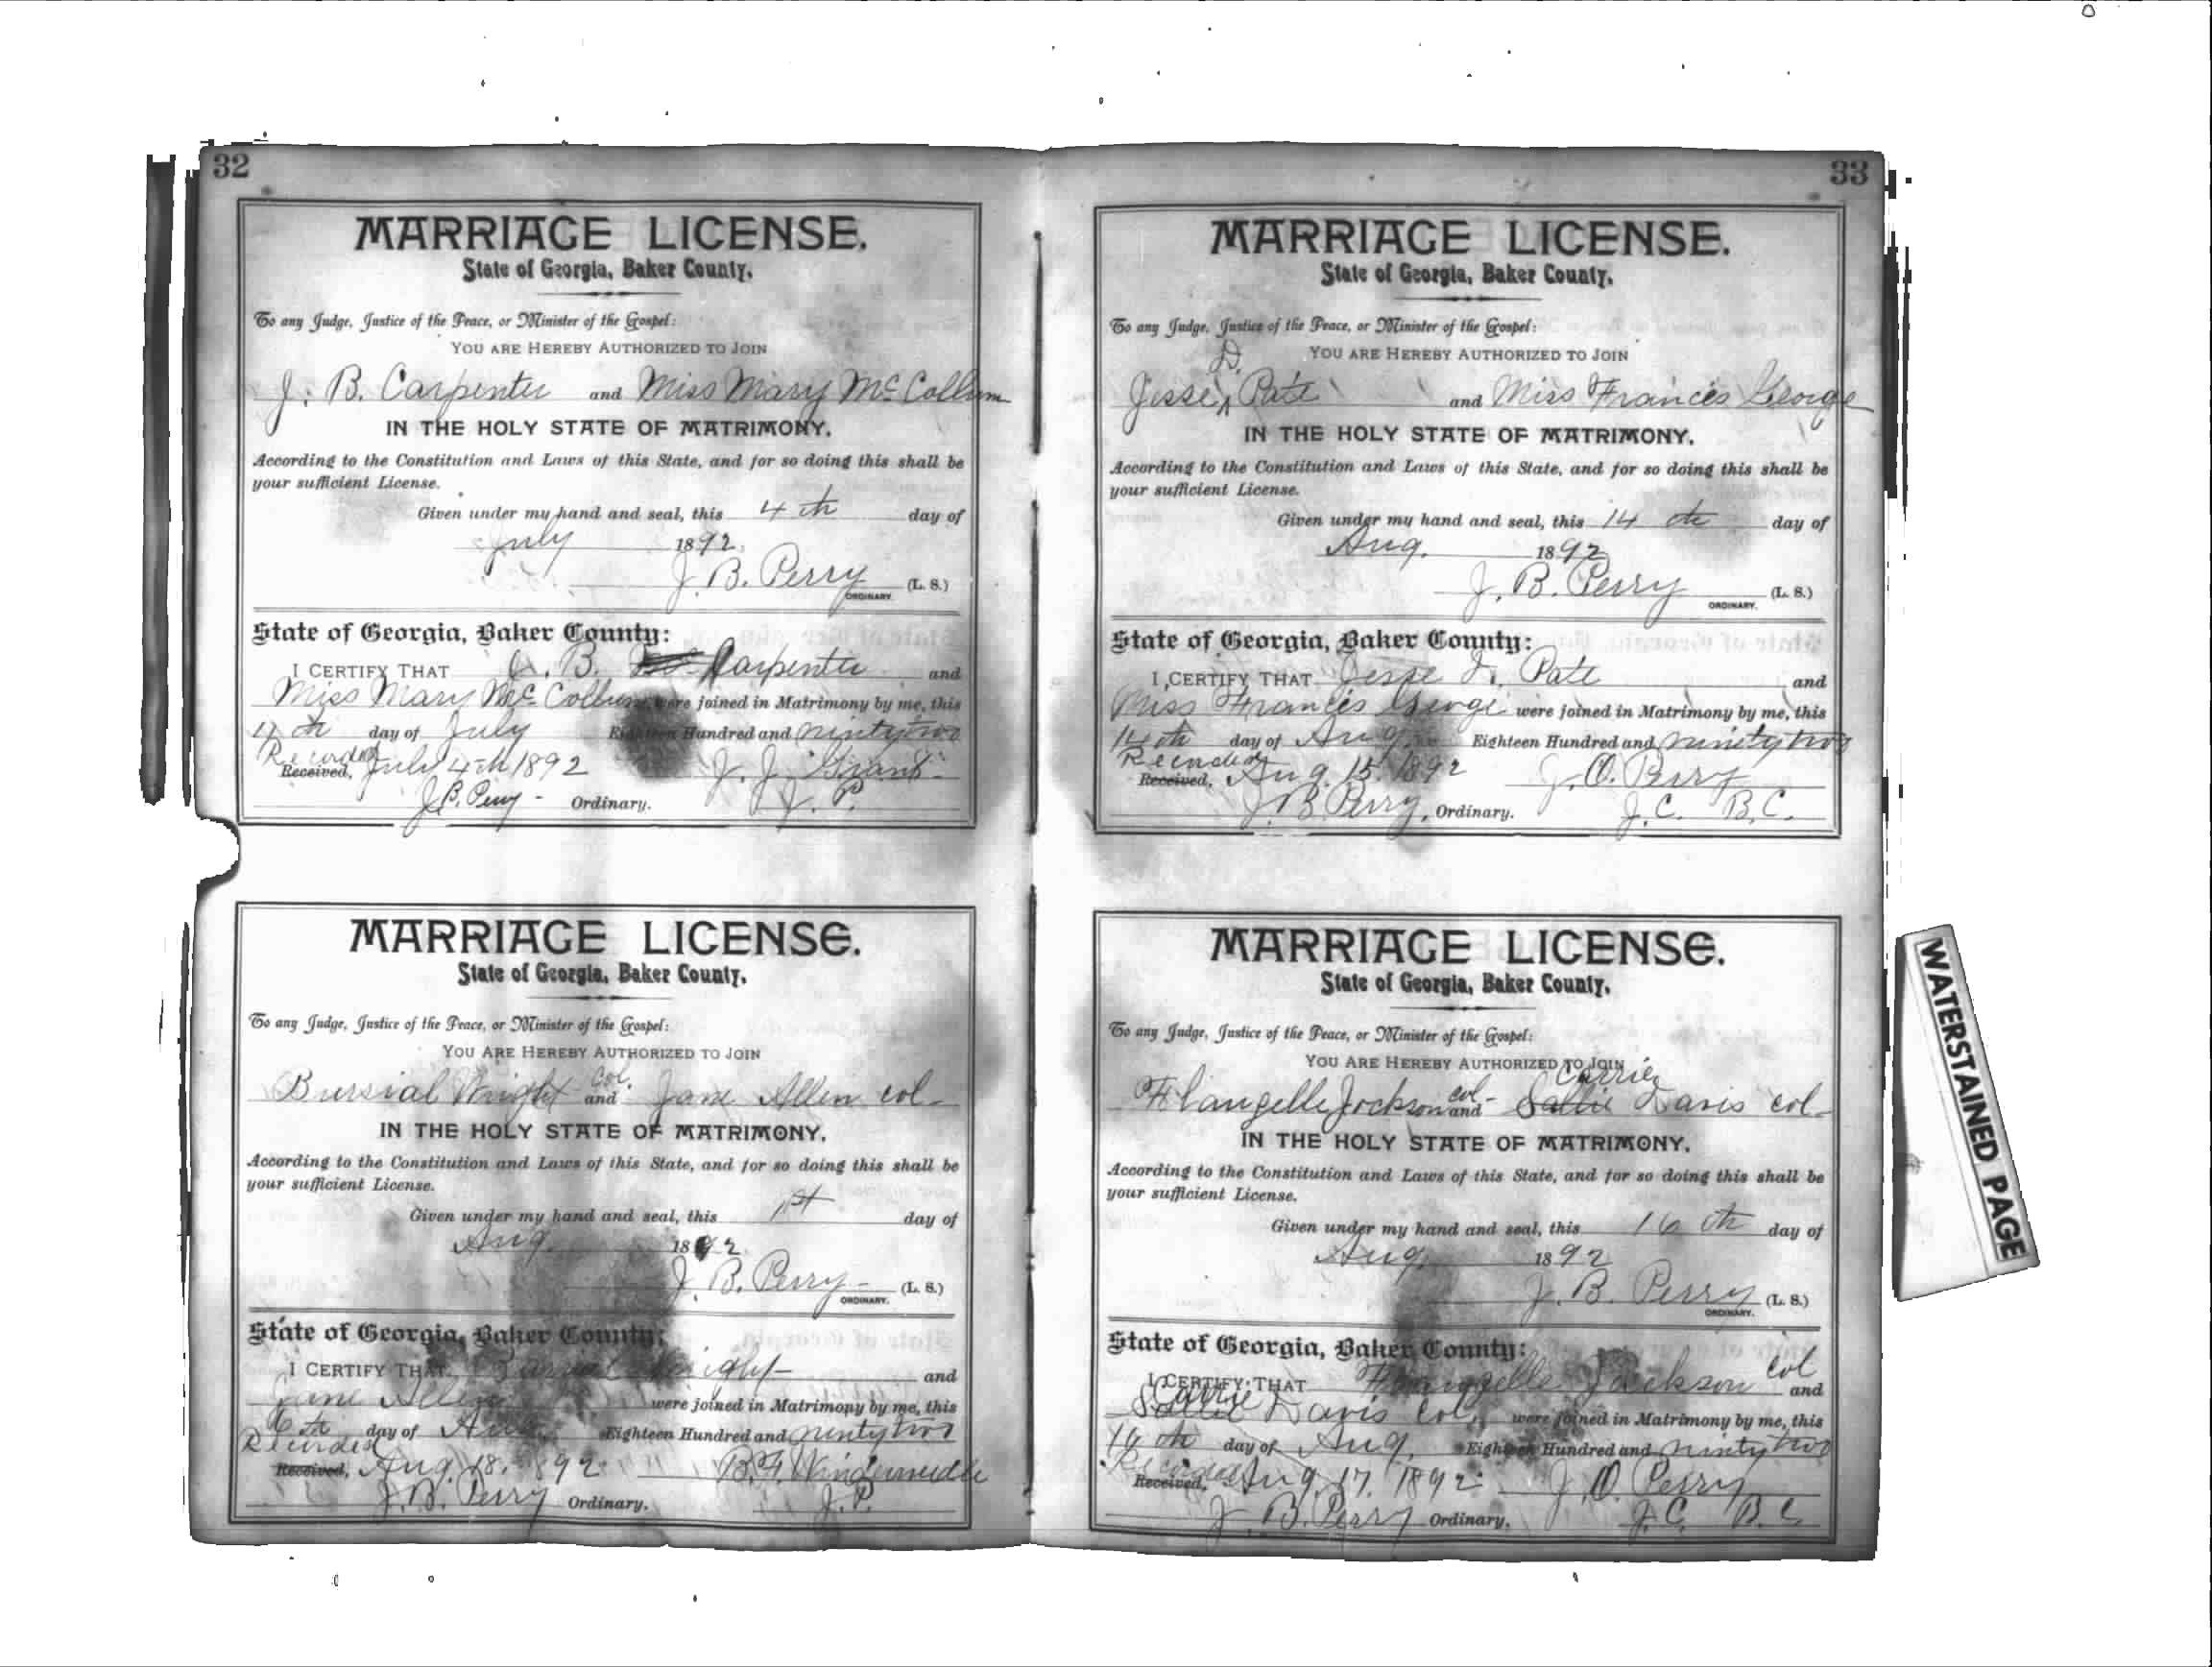 32
MARRIAGE LICENSE.
State of Georgia, Baker County.
To any Judge, Justice of the Peace, or Minister of the Gospel:
YOU ARE HEREBY AUTHORIZED TO JOIN
J. B. Carpenter and Miss Mary McCollum
IN THE HOLY STATE OF MATRIMONY.
According to the Constitution and Laws of this State, and for so doing this shall be
your sufficient License.
Given under my hand and seal, this 4th day of
July 1892
J. B. Perry (L. S.)
ORDINARY.
State of Georgia, Baker County:
I CERTIFY THAT B. Carpenter and
Miss Mary McCollum were joined in Matrimony by me, this
day of July Eighteen Hundred and ninty two
Recorded
Received, July 4th 1892 J. J. Grant
J. B. Perry - Ordinary. J. P.
MARRIAGE LICENSE.
State of Georgia, Baker County.
To any Judge, Justice of the Peace, or Minister of the Gospel:
YOU ARE HEREBY AUTHORIZED TO JOIN
Bursial Wright col. and Jane Allen col-
IN THE HOLY STATE OF MATRIMONY.
According to the Constitution and Laws of this State, and for so doing this shall be
your sufficient License.
Given under my hand and seal, this 1st day of
Aug 1892
J. B. Perry - (L. S.)
ORDINARY.
State of Georgia, Baker County:
I CERTIFY THAT Wright - and
Jane Allen were joined in Matrimony by me, this
6th day of Aug Eighteen Hundred and ninty two
Recorded
Received, Aug. 18. 1892
J. B. Perry Ordinary. J. P.
33
MARRIAGE LICENSE.
State of Georgia, Baker County.
To any Judge, Justice of the Peace, or Minister of the Gospel:
YOU ARE HEREBY AUTHORIZED TO JOIN
Jesse D. Pate and Miss Frances George
IN THE HOLY STATE OF MATRIMONY.
According to the Constitution and Laws of this State, and for so doing this shall be
your sufficient License.
Given under my hand and seal, this 14 th day of
Aug. 1892
J. B. Perry (L. S.)
ORDINARY.
State of Georgia, Baker County:
I CERTIFY THAT Jesse D. Pate and
Miss Frances George were joined in Matrimony by me, this
14th day of Aug. Eighteen Hundred and ninety two
Recorded
Received, Aug. 15. 1892 J. O. Perry
J. B. Perry, Ordinary. J. C. B. C.
MARRIAGE LICENSE.
State of Georgia, Baker County.
To any Judge, Justice of the Peace, or Minister of the Gospel:
YOU ARE HEREBY AUTHORIZED TO JOIN
Carrie
Flangelle Jockson col - and Sallie Davis col-
IN THE HOLY STATE OF MATRIMONY.
According to the Constitution and Laws of this State, and for so doing this shall be
your sufficient License.
Given under my hand and seal, this 16 th day of
Aug. 1892
J. B. Perry (L. S.)
ORDINARY.
State of Georgia, Baker County:
I CERTIFY THAT Flangelle Jackson col and
Carrie
Sallie Davis col, were joined in Matrimony by me, this
16th day of Aug. Eighteen Hundred and ninty two
Recorded
Received, Aug. 17. 1892 J. O. Perry
J. B. Perry Ordinary. J. C. B. C
WATERSTAINED PAGE